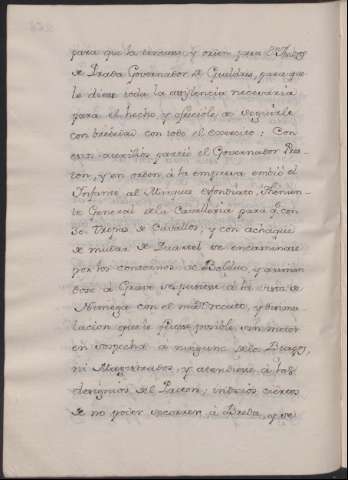 para que la tuviesse, y orden para Dn Andres
de Prada Governador de Gueldres, para que
le diese toda la assistencia necesaria
para el hecho, y ofreciole de seguirle
con brebedad con todo el exercito: Con
estos auxilios partió el Governador Pres
ton, y en orden á la empresa embió el
Infante al Marques Esfondrato, Thenien-
te General de la Cavalleria para q.e con
30. Tropas de Cavallos, y con achaque
de mudar de Quartel se encaminase
por los contornos de Bolduc, y arriman
dose á Grave se pusiese á la vista de
Nimega con el mas recato, y disimu-
lacion que le fuese posible sin meter
en sospecha á ninguno de los Burgos,
ni Magistrados, y atendiese á los
designios del Preston; indicios ciertos
de no poder socorrer á Breda, y se